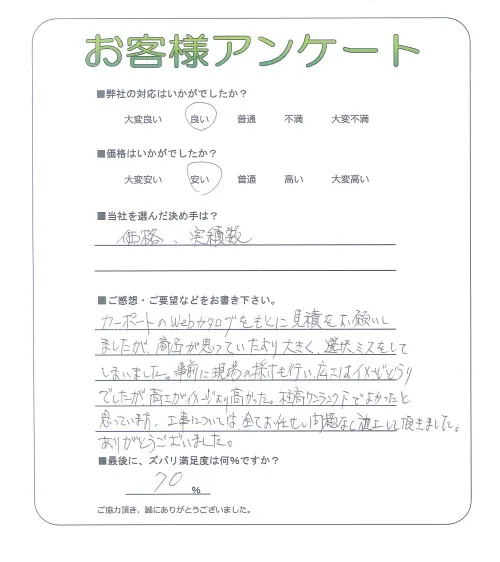 お客様アンケート
■弊社の対応はいかがでしたか？
大変良い 良い 普通 不満 大変不満
■価格はいかがでしたか？
大変安い 安い 普通 高い 大変高い
■当社を選んだ決め手は？
価格、実績数
■ご感想・ご要望などをお書き下さい。
カーポートのWebカタログをもとに見積をお願いし
ましたが、商品が思っていたより大きく、選択ミスをして
しまいました。事前に現場の採寸も行い、広さはイメージどうり
でしたが高さがイメージより高かった。柱高さ1ランク下でよかったと
思っています。工事については全てお任せし問題なく施工して頂きました。
ありがとうございました。
■最後に、ズバリ満足度は何％ですか？
70 ％
ご協力頂き、誠にありがとうございました。